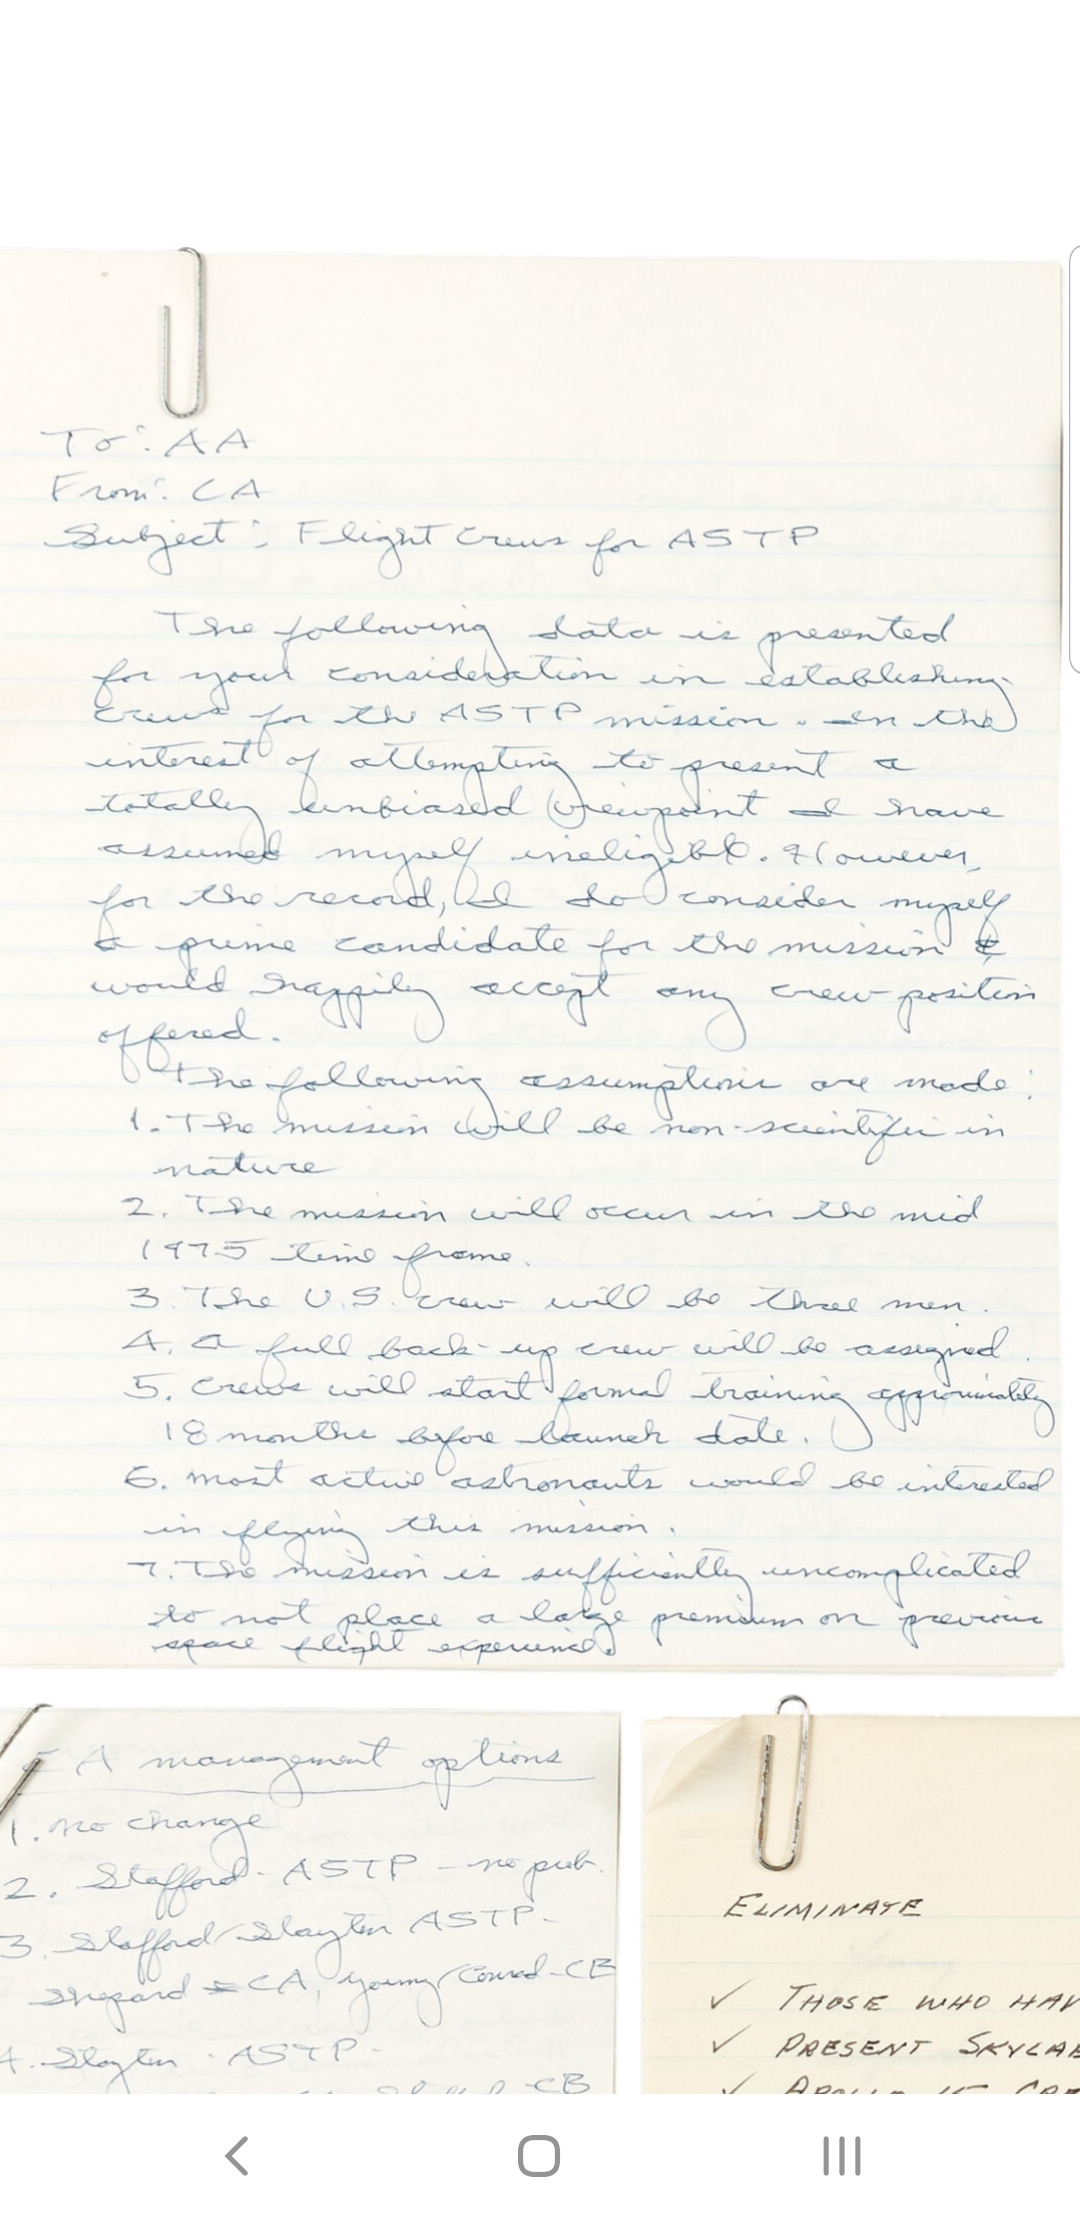 To: AA
From: CA
Subject: Flight Crews for ASTP
The following data is presented
for your consideration in establishing
crews for the ASTP mission. In the
interest of attempting to present a
totally unbiased viewpoint I have
assumed myself ineligible. However,
for the record, I do consider myself
a prime candidate for the mission &
would happily accept any crew position
offered.
The following assumptions are made:
1. The mission will be non-scientific in
nature
2. The mission will occur in the mid
1975 time frame.
3. The U.S. crew will be three men.
4. A full back-up crew will be assigned.
5. Crews will start formal training approximately
18 months before launch date.
6. Most active astronauts would be interested
in flying this mission.
7. The mission is sufficiently uncomplicated
to not place a large premium on previous
space flight experience.
CA management options
1. No change
2. Stafford - ASTP - no pub.
3. Stafford/Slayton ASTP -
Shepard = CA, Young/Conrad - CB
4. Slayton - ASTP -
CB
ELIMINATE
✓ THOSE WHO HAV
✓ PRESENT SKYLAB
✓ APOLLO 15